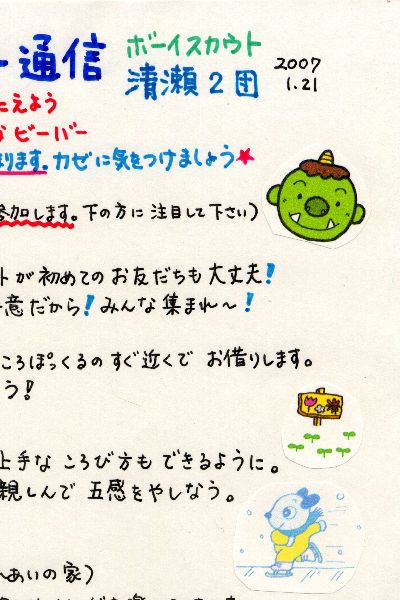 ー通信
ボーイスカウト
清瀬2団
2007
1.21
たえよう
なビーバー
ります。カゼに気をつけましょう★
参加します。下の方に注目して下さい)
トが初めてのお友だちも大丈夫!
意だから!みんな集まれ〜!
ころぽっくるのすぐ近くでお借りします。
う!
上手なころび方もできるように。
親しんで五感をやしなう。
あいの家)